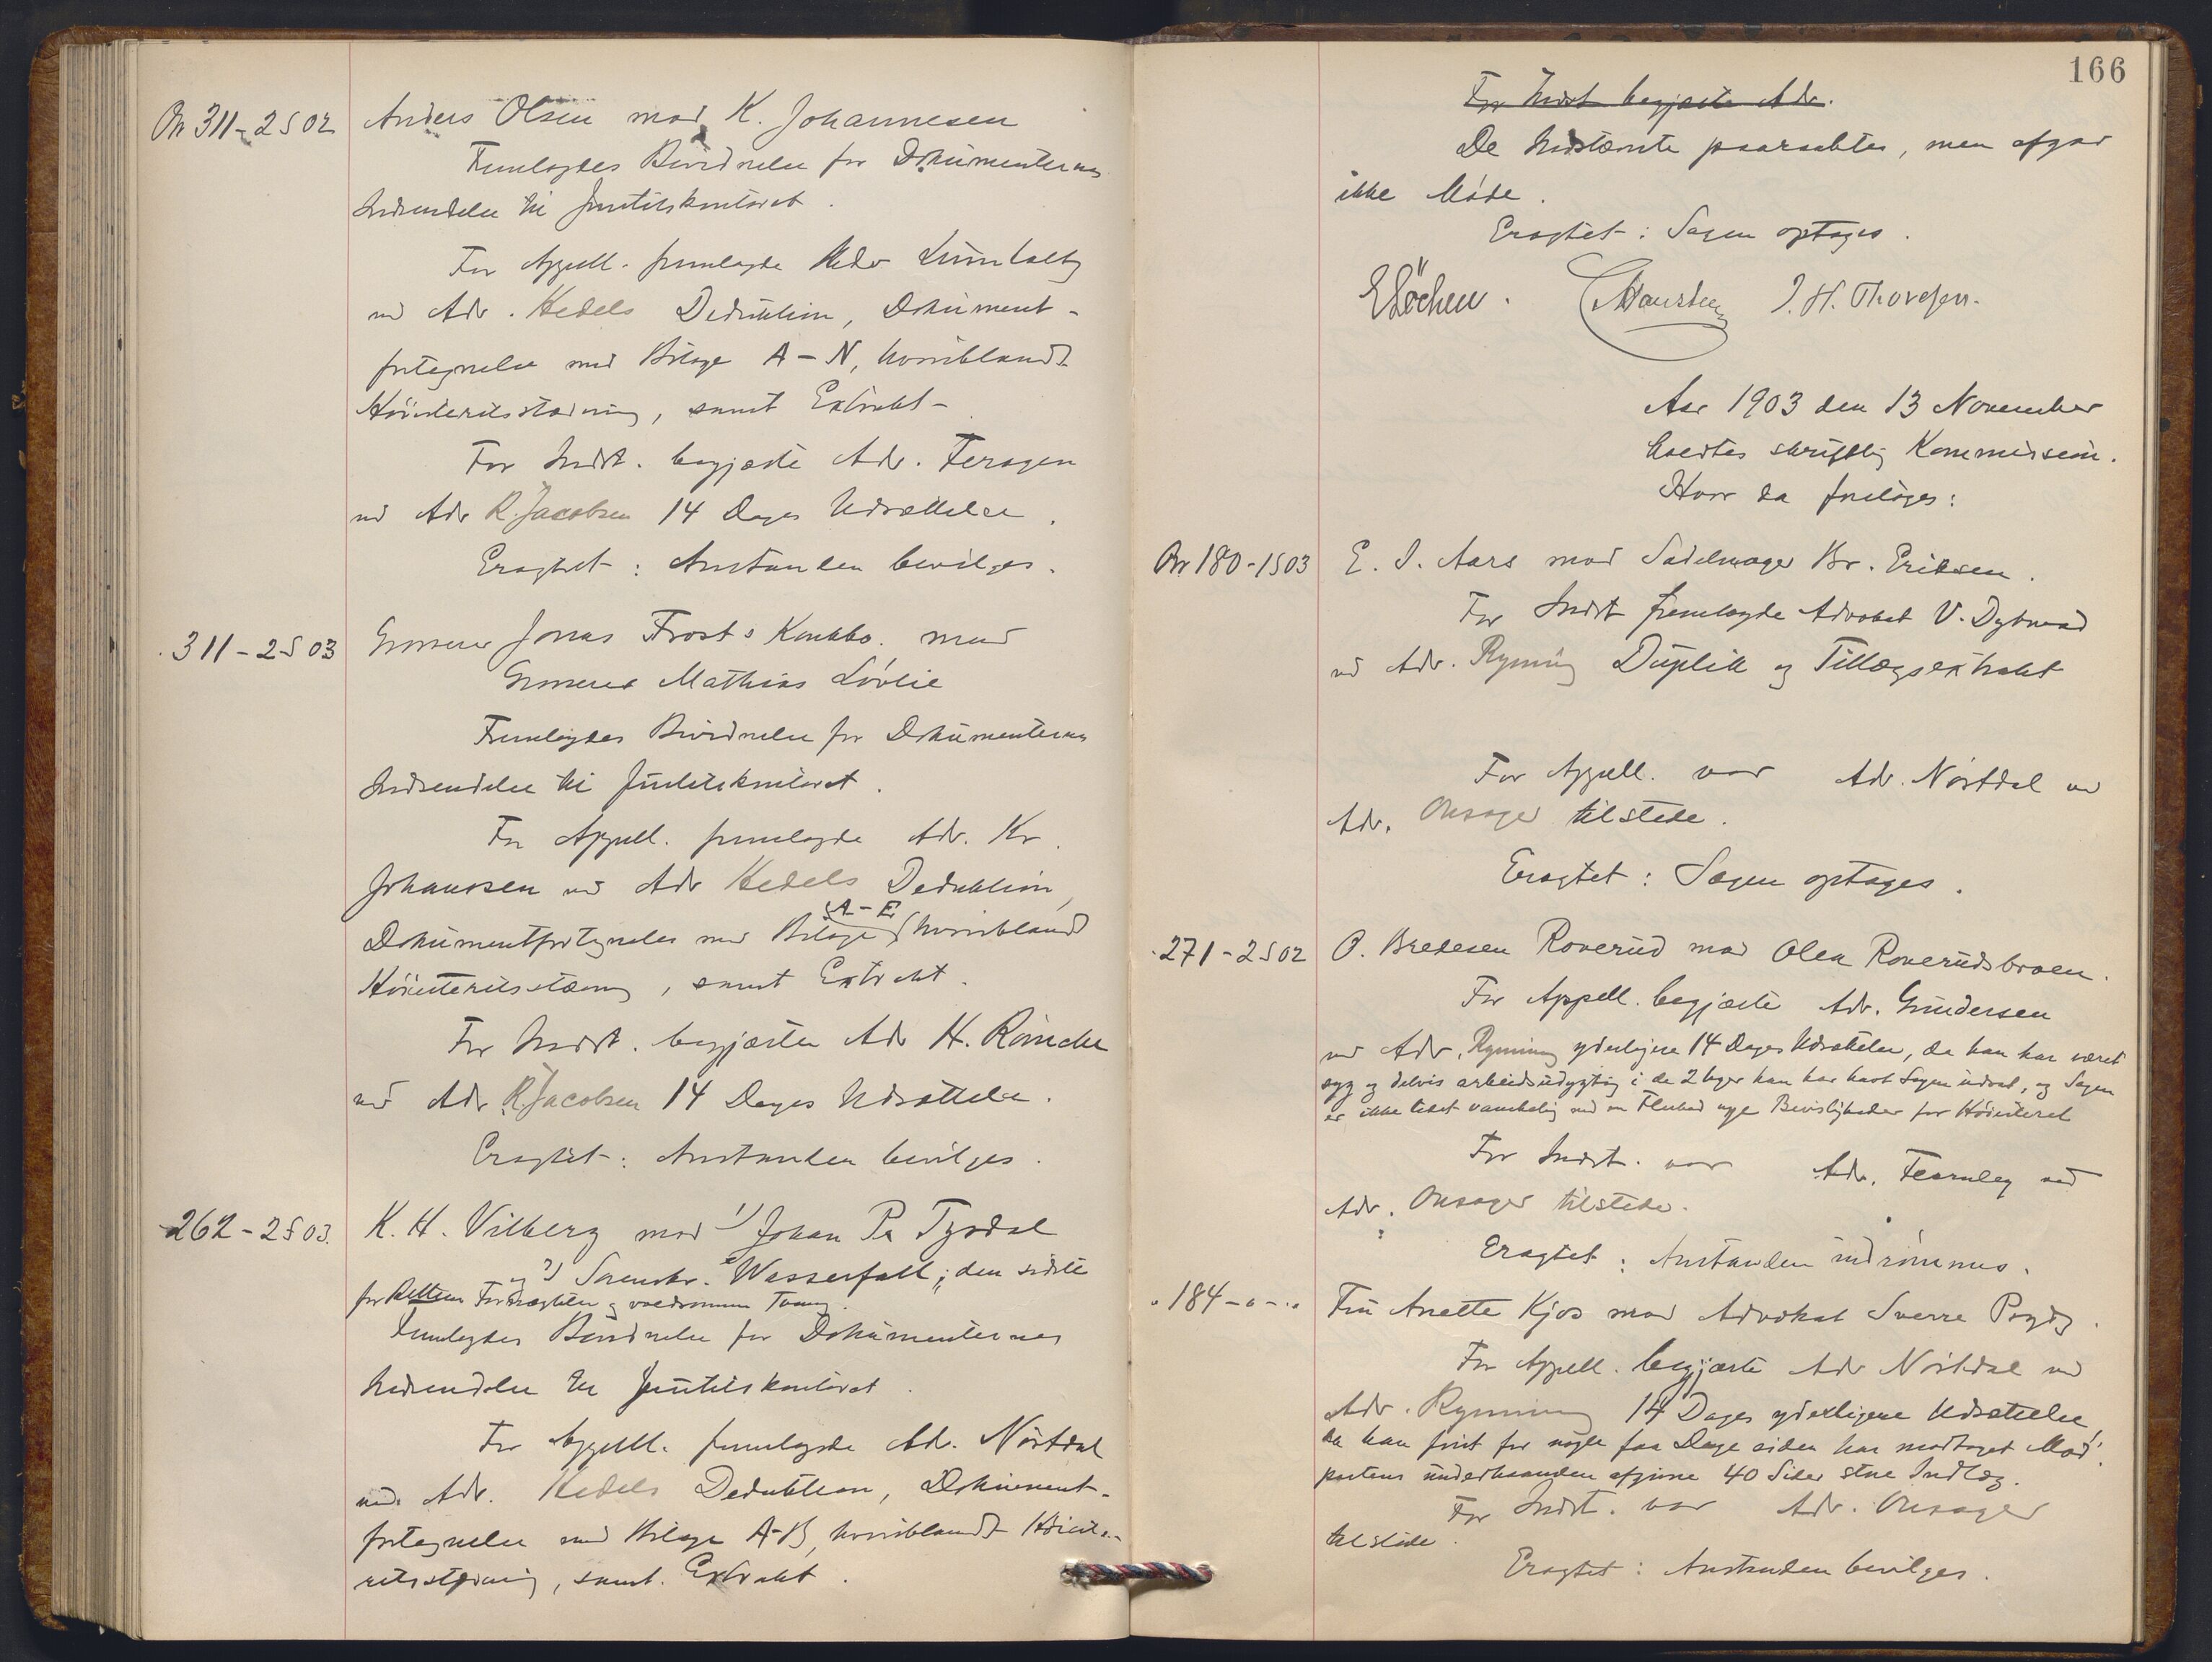 Nr 311-2 S 02 Anders Olsen mod K. Johannesen
Fremlagdes Bevidnelse for Dokumenternes
Indsendelse til Justitskontoret.
For Appell. fremlagde Adv
ved Adv. Hedels Deduktion, Dokument-
fortegnelse med Bilage A-N, hvoriblandt
Höiesteretsstævning, samt Extrakt-
For Indst. begjærte Adv. Feragen
ved Adv R. Jacobsen 14 Dages Udsættelse.
Eragtet: Anstanden bevilges.
311-2 S 03 Grosserer Jonas Frosts Konkbo. mod
Grosserer Mathias Lövlie
Fremlagdes Bevidnelse for Dokumenternes
Indsendelse til Justitskontoret.
For Appell. fremlagde Adv. Kr.
Johanssen ved Adv Hedels Deduktion,
A-E
Dokumentfortegnelse med Bilage hvoriblandt
Höiesteretsstævning, samt Extrakt.
For Indst. begjærte Adv H. Röincke
ved Adv R. Jacobsen 14 Dages Udsættelse.
Eragtet: Anstanden bevilges.
262-2 S 03. K. H. Vikberg mod 1) Johan P. Tysdal
og 2) Sorenskr. Wasserfall; den sidste
for Rettens Forsægtelse og
Fremlagdes Bevidnelse for Dokumenternes
Indsendelse til Justitskontoret.
For Appell. fremlagde Adv. Nörtdal
ved Adv. Hedels Deduktion, Dokument-
fortegnelse med Bilage A-B, hvoriblandt Höieste-
retsstævning, samt Extrakt.
166
For Indst begjærte Adv.
De Indstævnte paaraabtes, men afgav
ikke Möde.
Eragtet: Sagen optages.
E Löchen. J. H. Thoresen.
Aar 1903 den 13 November
holdtes skriftlig Kommission.
Hvor da foretoges:
Nr 180-1 S 03 E. S. Aars mod Sadelmager Br. Eriksen.
For Indst fremlagde Advokat V. Dybwad
ved Adv. Rynning Duplik og Tillægsextrakt
For Appell. var Adv. Nörtdal ved
Adv. Onsager tilstede.
Eragtet: Sagen optages.
271-2 S 02 O. Bredesen Roverud mod Olea Roverudsbroen.
For Appell. begjærte Adv. Gundersen
ved Adv. Rynning yderligere 14 Dages Udsættelse, da han har været
syg og delvis arbeidsudygtig i de 2 Uger han har havt Sagen udval, og Sagen
er ikke lidet vanskelig med en Flerhed nye Bevisligheder for Höiesteret
For Indst. var Adv. Fearnley ved
Adv. Onsager tilstede.
Eragtet: Anstanden indrömmes.
184-"-" Fru Anette Kjos mod Advokat Sverre Prydz.
For Appell. begjærte Adv Nörtdal ved
Adv. Rynning 14 Dages yderligere Udsættelse,
da han först for nogle faa Dage siden har modtaget Mod-
partens underhaanden afgivne 40 Sider store Indlæg.
For Indst. var Adv. Onsager
tilstede.
Eragtet: Anstanden bevilges.